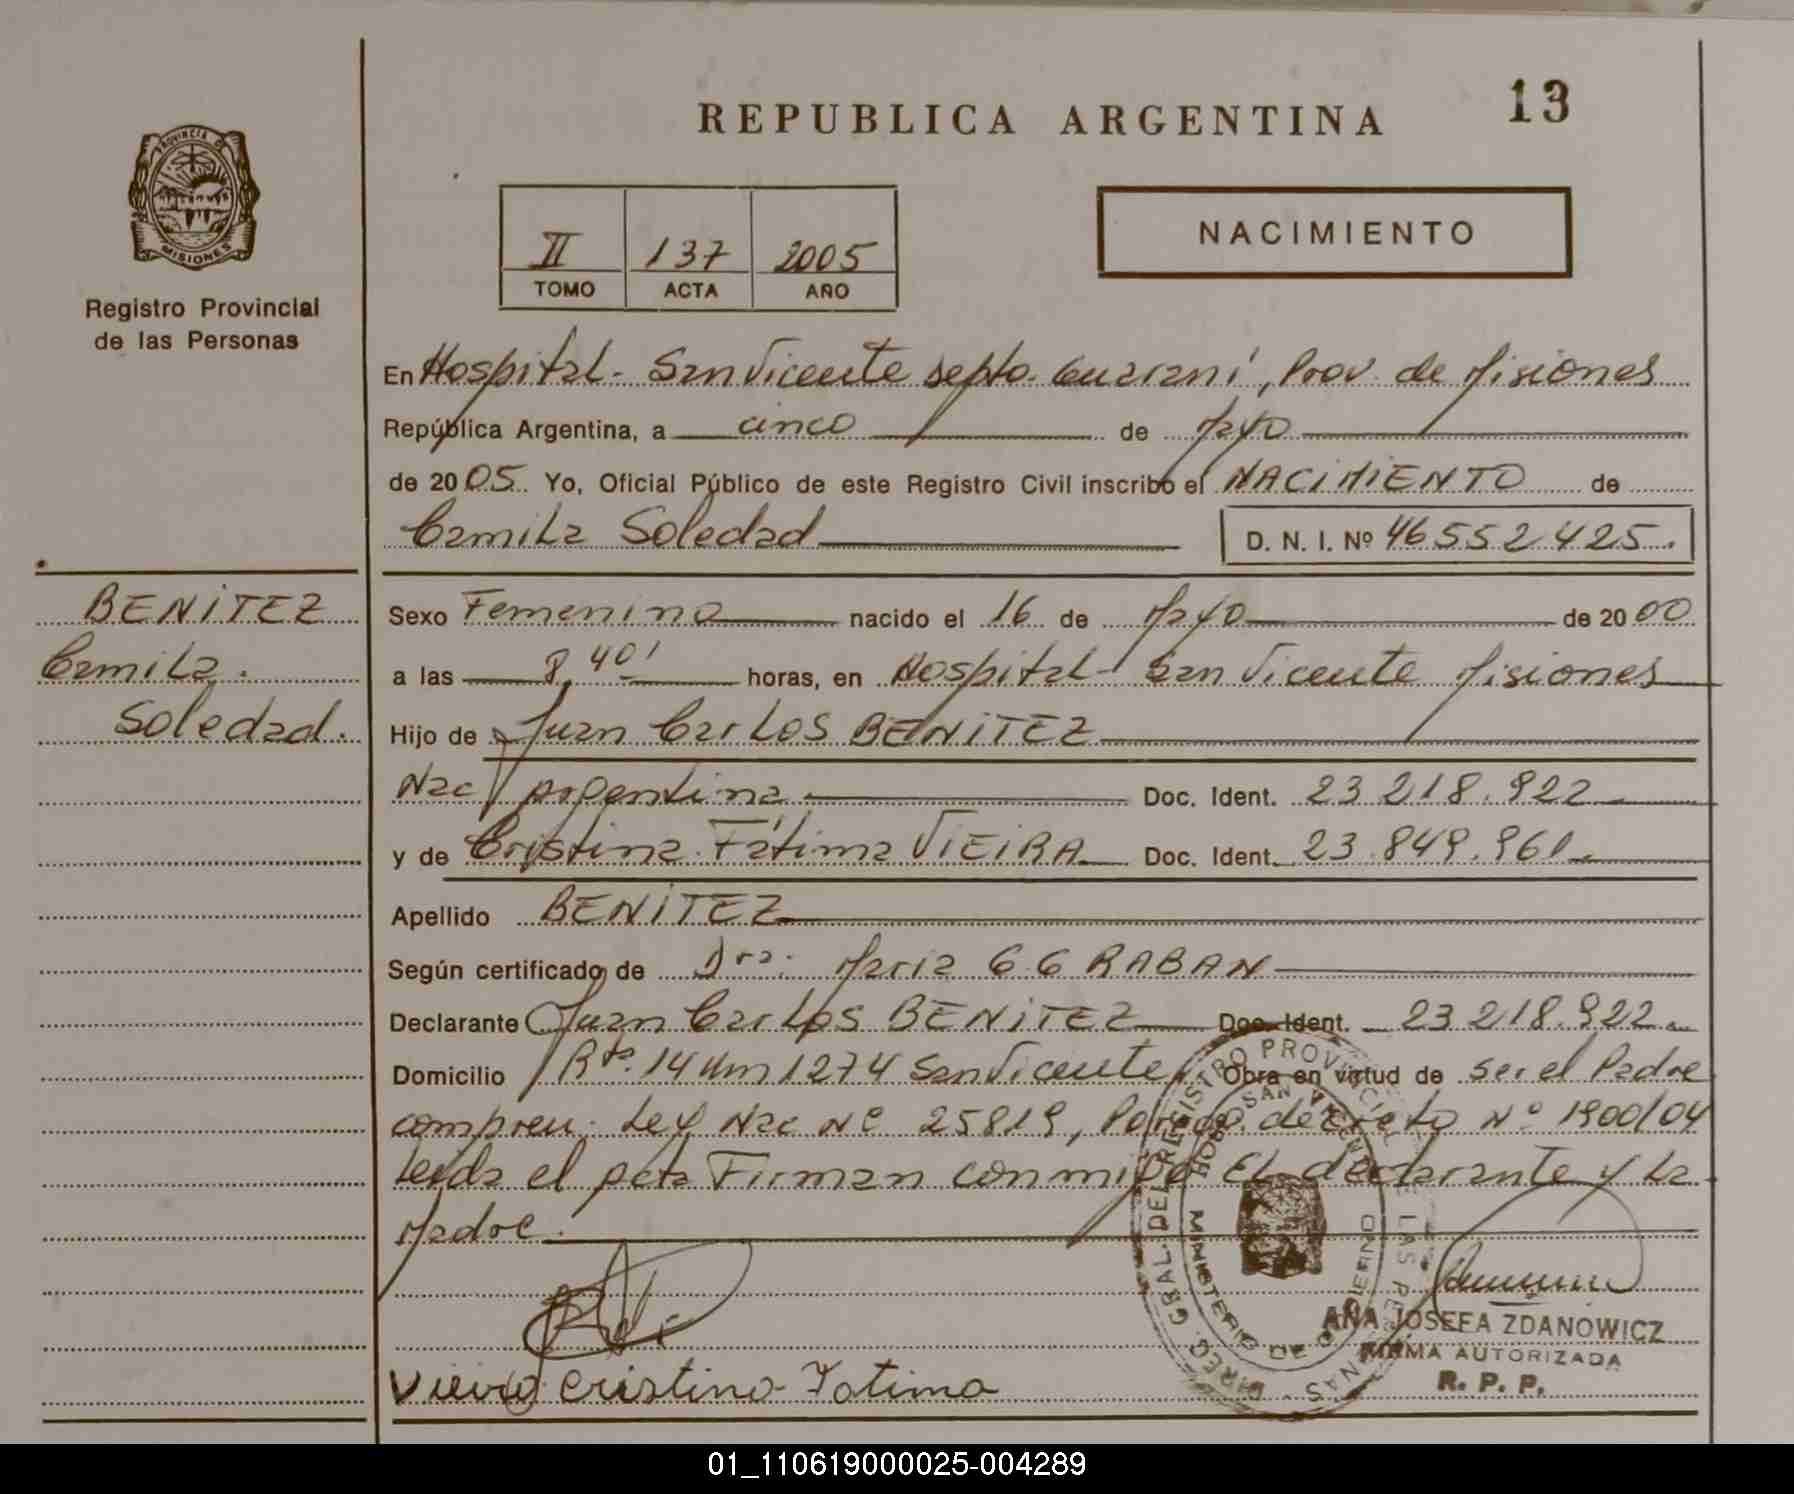 REPUBLICA ARGENTINA
13
PROVINCIA D
MISIONES
Registro Provincial
de las Personas
II 137 2005
TOMO ACTA AÑO
NACIMIENTO
En Hospital - San Vicente Depto. Guaraní, Prov. de Misiones
República Argentina, a cinco de Mayo
de 2005 Yo, Oficial Público de este Registro Civil inscribo el NACIMIENTO de
Camila Soledad
D. N. I. Nº 46 552 425.
BENITEZ
Camila.
Soledad.
Sexo Femenino nacido el 16 de Mayo de 2000
a las 8,40' horas, en Hospital - San Vicente Misiones
Hijo de Juan Carlos BENITEZ
Nac Argentina. Doc. Ident. 23 218.922
y de Cristina Fátima VIEIRA Doc. Ident. 23.849.961.
Apellido BENITEZ
Según certificado de Dra. Maria G G RABAN
Declarante Juan Carlos BENITEZ Doc. Ident. 23 218.922.
Domicilio Rta. 14 Km 1274 San Vicente Obra en virtud de ser el Padre
compren. Ley Nac Nº 25819, decreto Nº 1900/04
Leida el Acta Firman conmigo El declarante y La
Madre.
DIREC. GRAL. DEL REGISTRO PROVINCIAL DE LAS PERSONAS
HOSP. SAN VICENTE
MINISTERIO DE GOBIERNO
ANA JOSEFA ZDANOWICZ
FIRMA AUTORIZADA
R. P. P.
Vieira Cristina Fatima
01_110619000025-004289